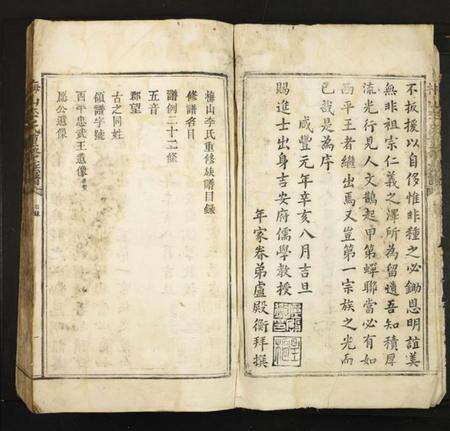 不扳援以自侈惟非種之必鋤恩明誼美
無非祖宗仁義之澤所為留遺吾知積厚
流光行見人文鵲起甲第蟬聯當必有如
西平王者繼出焉又豈第一宗族之光而
已哉是為序
咸豐元年辛亥八月吉旦
賜進士出身吉安府儒學教授
年家眷弟盧殿衡拜撰
梅山李氏重修族譜目錄
修譜名目
譜例二十二條
五音
郡望
古之同姓
領譜字號
西平忠武王遺像